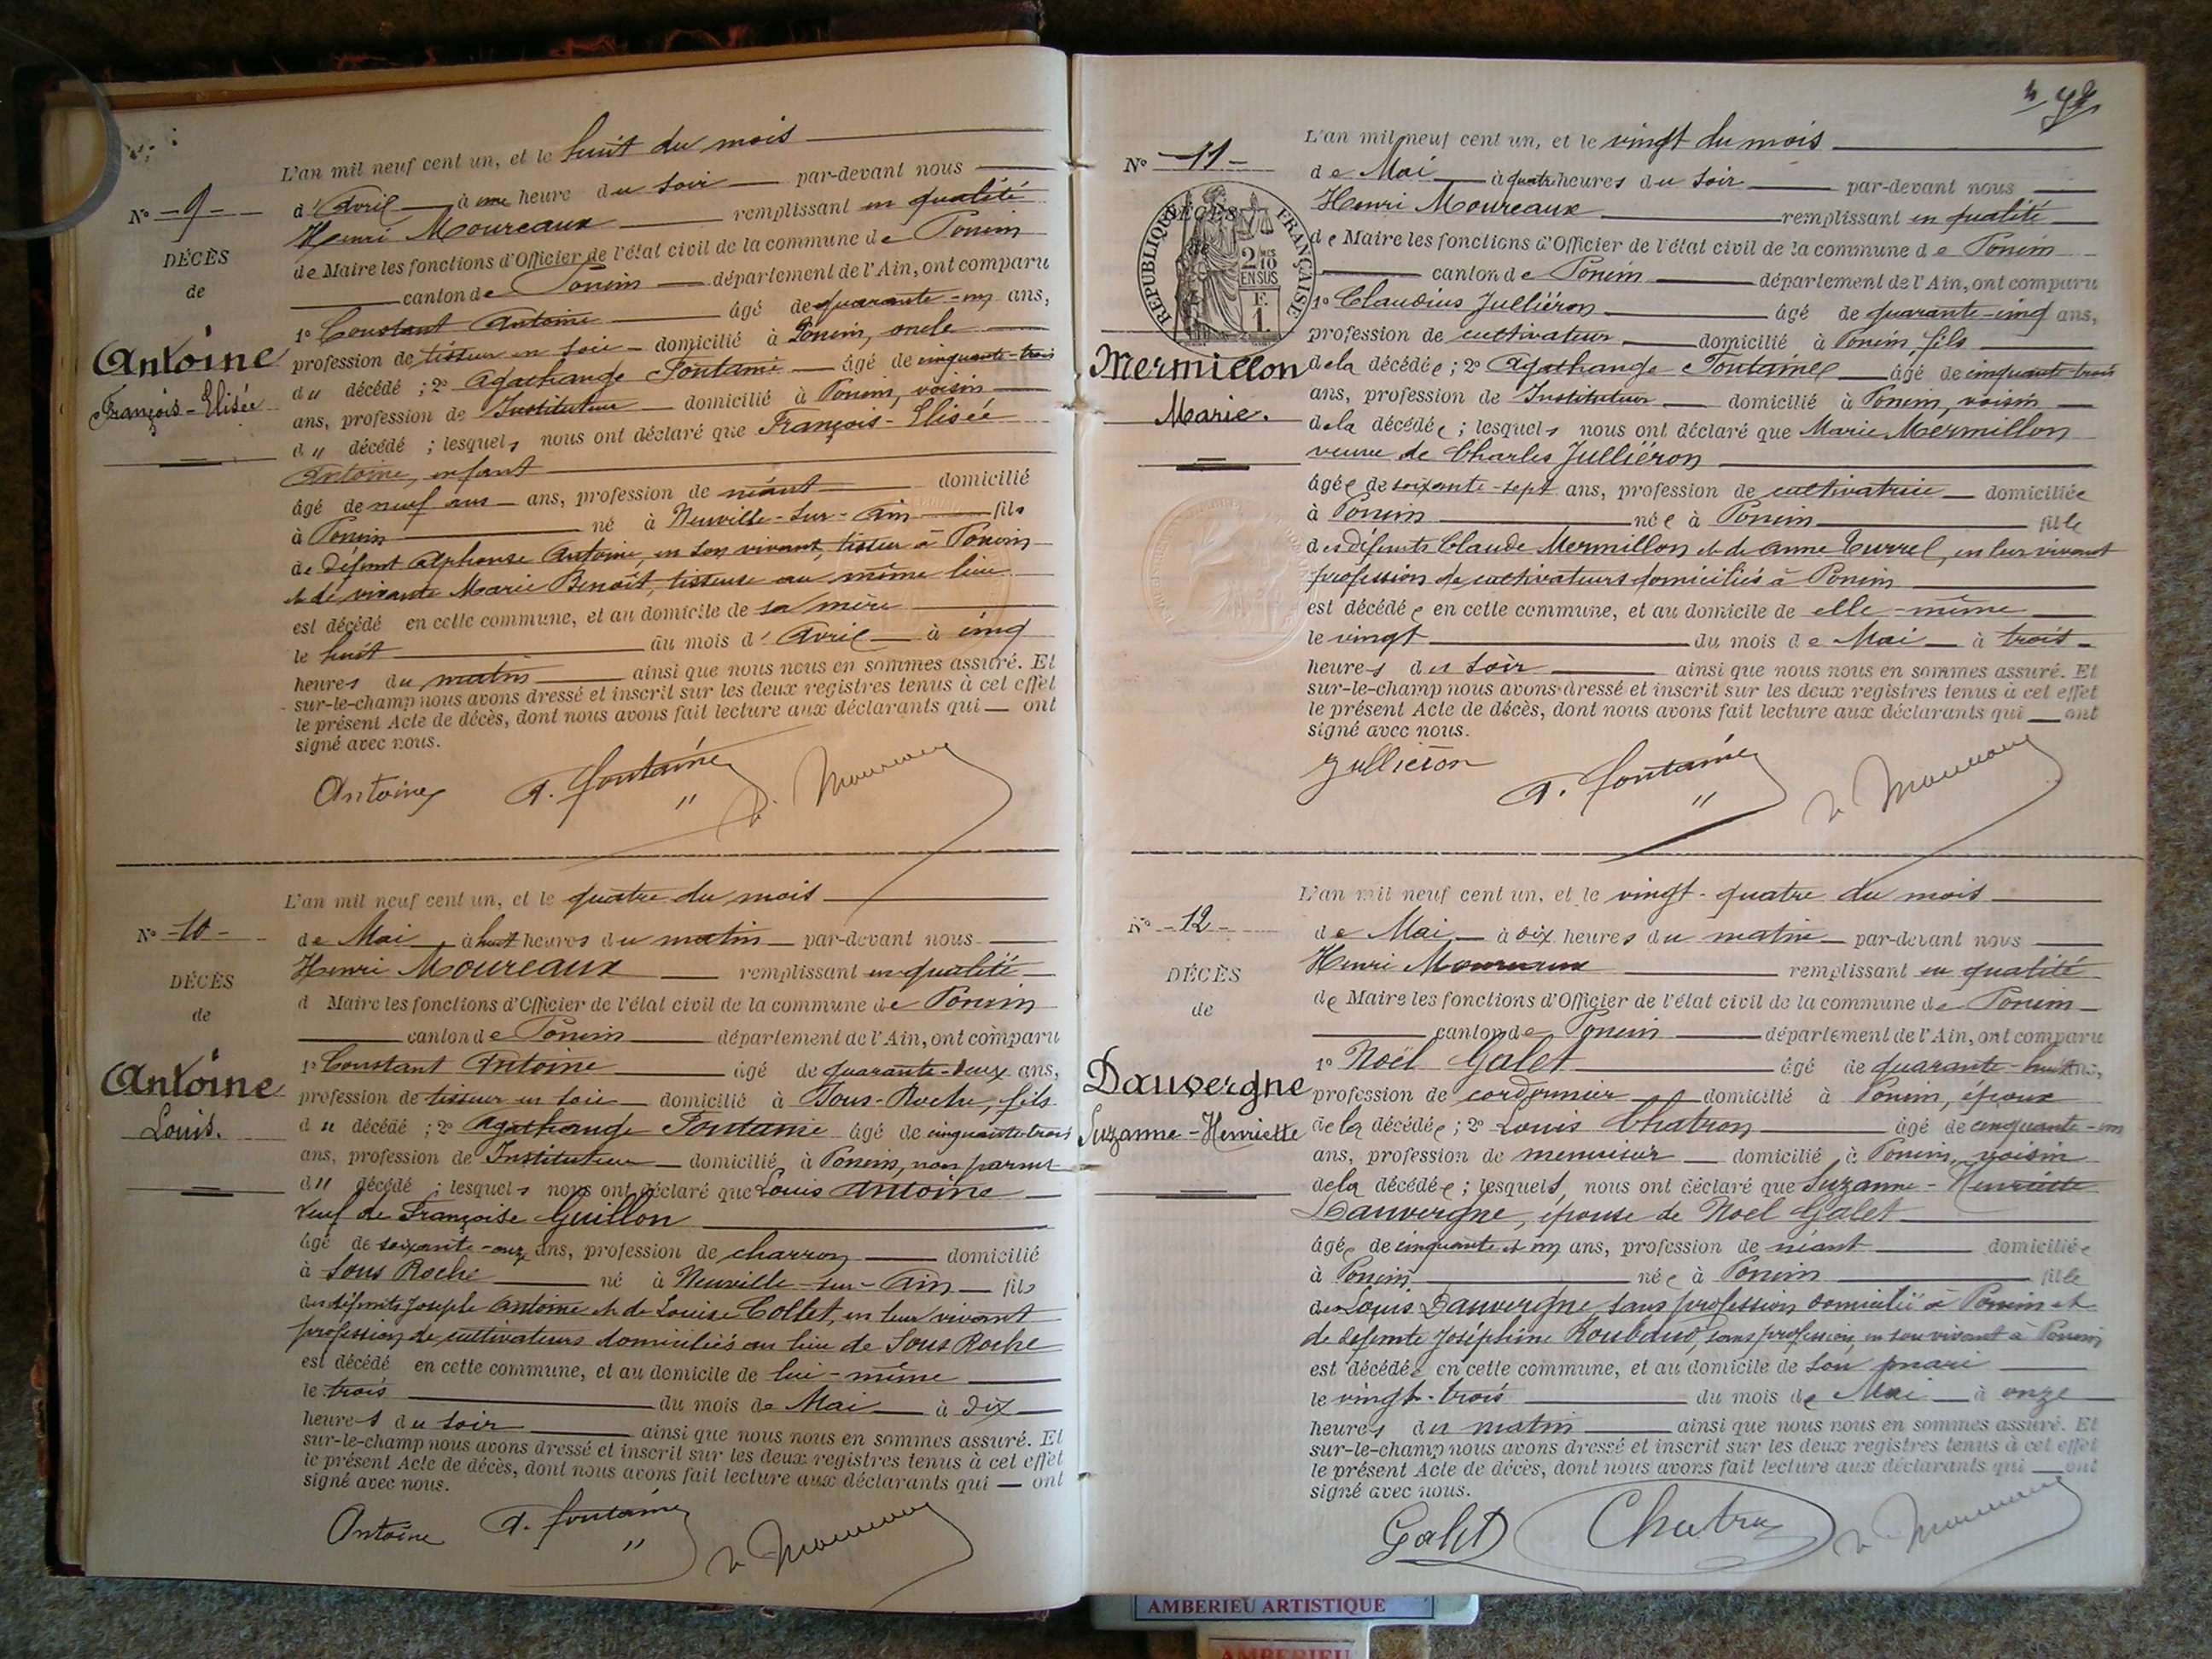 N° - 9 -
DÉCÈS
de
Antoine
François-Elisée
L'an mil neuf cent un, et le huit du mois
d'Avril à une heure du soir par-devant nous
Henri Moureaux remplissant en qualité
de Maire les fonctions d'Officier de l'état civil de la commune de Poncin
canton de Poncin département de l'Ain, ont comparu
1° Constant Antoine âgé de quarante-un ans,
profession de tisseur en soie domicilié à Poncin, oncle
du décédé ; 2° Agathange Fontaine âgé de cinquante-trois
ans, profession de Instituteur domicilié à Poncin, voisin
du décédé ; lesquels nous ont déclaré que François-Elisée
Antoine, enfant
âgé de neuf ans ans, profession de néant domicilié
à Poncin né à Neuville-sur-Ain fils
de défunt Alphonse Antoine, en son vivant, tisseur à Poncin
et de vivante Marie Benoît, tisseuse au même lieu
est décédé en cette commune, et au domicile de sa mère
le huit du mois d'Avril à cinq
heures du matin ainsi que nous nous en sommes assuré. Et
sur-le-champ nous avons dressé et inscrit sur les deux registres tenus à cet effet
le présent Acte de décès, dont nous avons fait lecture aux déclarants qui ont
signé avec nous.
Antoine A. Fontaine h. Moureaux
N° - 10 -
DÉCÈS
de
Antoine
Louis.
L'an mil neuf cent un, et le quatre du mois
de Mai à huit heures du matin par-devant nous
Henri Moureaux remplissant en qualité
d Maire les fonctions d'Officier de l'état civil de la commune de Poncin
canton de Poncin département de l'Ain, ont comparu
1° Constant Antoine âgé de quarante-deux ans,
profession de tisseur en soie domicilié à Sous-Roche, fils
du décédé ; 2° Agathange Fontaine âgé de cinquante-trois
ans, profession de Instituteur domicilié à Poncin, non parent
du décédé ; lesquels nous ont déclaré que Louis Antoine
veuf de Françoise Guillon
âgé de soixante-onze ans, profession de charron domicilié
à Sous Roche né à Neuville-sur-Ain fils
des défunts Joseph Antoine et de Louise Collet, en leur vivant
profession de cultivateurs domiciliés au lieu de Sous Roche
est décédé en cette commune, et au domicile de lui-même
le trois du mois de Mai à dix
heures du soir ainsi que nous nous en sommes assuré. Et
sur-le-champ nous avons dressé et inscrit sur les deux registres tenus à cet effet
le présent Acte de décès, dont nous avons fait lecture aux déclarants qui ont
signé avec nous.
Antoine A. Fontaine h. Moureaux
N° - 11 -
DÉCÈS
RÉPUBLIQUE FRANÇAISE
2/10 EN SUS
F. 1.
Mermillon
Marie.
L'an mil neuf cent un, et le vingt du mois
de Mai à quatre heures du soir par-devant nous
Henri Moureaux remplissant en qualité
de Maire les fonctions d'Officier de l'état civil de la commune de Poncin
canton de Poncin département de l'Ain, ont comparu
1° Claudius Julliéron âgé de quarante-cinq ans,
profession de cultivateur domicilié à Poncin, fils
de la décédée ; 2° Agathange Fontaine âgé de cinquante-trois
ans, profession de Instituteur domicilié à Poncin, voisin
de la décédée ; lesquels nous ont déclaré que Marie Mermillon
veuve de Charles Julliéron
âgée de soixante-sept ans, profession de cultivatrice domiciliée
à Poncin née à Poncin fille
des défunts Claude Mermillon et de Anne Currel, en leur vivant
profession de cultivateurs domiciliés à Poncin
est décédée en cette commune, et au domicile de elle-même
le vingt du mois de Mai à trois
heures du soir ainsi que nous nous en sommes assuré. Et
sur-le-champ nous avons dressé et inscrit sur les deux registres tenus à cet effet
le présent Acte de décès, dont nous avons fait lecture aux déclarants qui ont
signé avec nous.
Julliéron A. Fontaine h. Moureaux
N° - 12 -
DÉCÈS
de
Dauvergne
Suzanne-Henriette
L'an mil neuf cent un, et le vingt-quatre du mois
de Mai à dix heures du matin par-devant nous
Henri Moureaux remplissant en qualité
de Maire les fonctions d'Officier de l'état civil de la commune de Poncin
canton de Poncin département de l'Ain, ont comparu
1° Noël Galet âgé de quarante-huit ans,
profession de cordonnier domicilié à Poncin, époux
de la décédée ; 2° Louis Chatron âgé de cinquante-un
ans, profession de menuisier domicilié à Poncin, voisin
de la décédée ; lesquels nous ont déclaré que Suzanne-Henriette
Dauvergne, épouse de Noël Galet
âgée de cinquante et un ans, profession de néant domiciliée
à Poncin née à Poncin fille
de Louis Dauvergne sans profession domicilié à Poncin et
de défunte Joséphine Roubaud, sans profession, en son vivant à Poncin
est décédée en cette commune, et au domicile de son mari
le vingt-trois du mois de Mai à onze
heures du matin ainsi que nous nous en sommes assuré. Et
sur-le-champ nous avons dressé et inscrit sur les deux registres tenus à cet effet
le présent Acte de décès, dont nous avons fait lecture aux déclarants qui ont
signé avec nous.
Galet Chatron h. Moureaux
AMBERIEU ARTISTIQUE
AMBERIEU